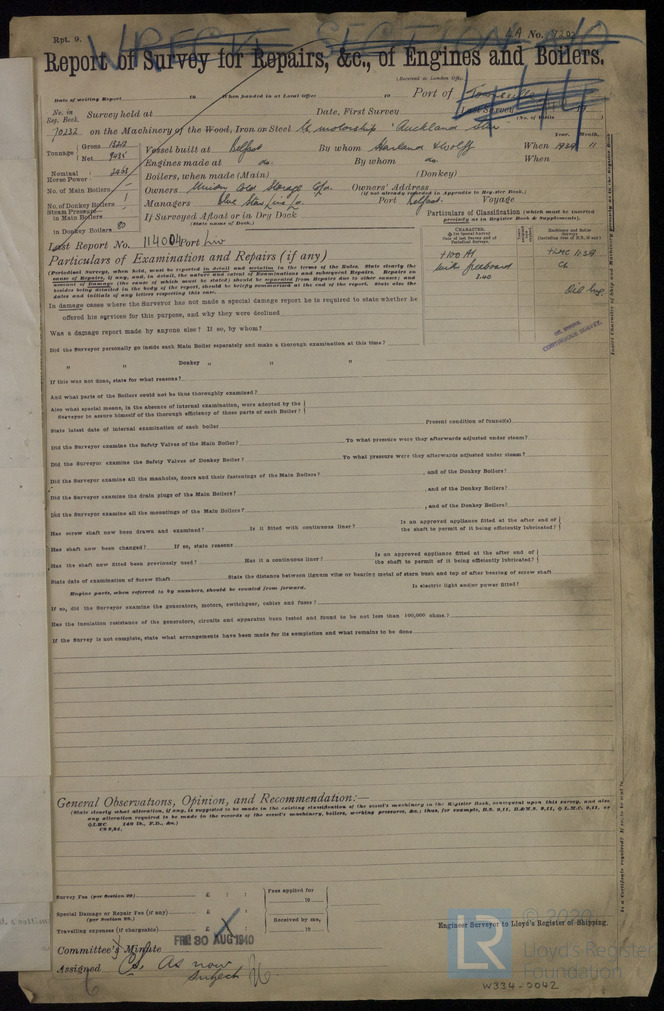 Rpt. 9. No.
WRECK SECTION
Report of Survey for Repairs, &c., of Engines and Boilers.
(Received at London Office
Date of writing Report 19 When handed in at Local Office 19 Port of Townsville
No. in Reg. Book. Survey held at Date, First Survey Last Survey 19
(No. of Visits
70232 on the Machinery of the Wood, Iron or Steel tr motorship "Auckland Star"
Tonnage Gross Net Vessel built at Belfast By whom Harland & Wolff When Year. Month. 1939 11
Engines made at do. By whom do. When
Nominal Horse Power Boilers, when made (Main) (Donkey)
No. of Main Boilers Owners Union Cold Storage Co Owners' Address
(if not already recorded in Appendix to Register Book.)
No. of Donkey Boilers 1 Managers Blue Star Line Port Belfast. Voyage
Steam Pressure in Main Boilers If Surveyed Afloat or in Dry Dock
(State name of Dock.)
in Donkey Boilers 80
Last Report No. 114004 Port Lw
Particulars of Classification (which must be inserted precisely as in Register Book & Supplements).
+100 A1
with freeboard
2.40
+LMC 11.39
CL
Oil Eng.
CONTINUOUS SURVEY.
Particulars of Examination and Repairs (if any)
(Periodical Surveys, when held, must be reported in detail and seriatim in the terms of the Rules. State clearly the
cause of Repairs, if any, and, in detail, the nature and extent of Examinations and subsequent Repairs. Repairs on
account of Damage (the cause of which must be stated) should be separated from Repairs due to other causes; and
besides being detailed in the body of the report, should be briefly summarised at the end of the report. State also the
dates and initials of any letters respecting this case.
In damage cases where the Surveyor has not made a special damage report he is required to state whether he
offered his services for this purpose, and why they were declined
Was a damage report made by anyone else? If so, by whom?
Did the Surveyor personally go inside each Main Boiler separately and make a thorough examination at this time?
„ „ Donkey „ „ „
If this was not done, state for what reasons?
And what parts of the Boilers could not be thus thoroughly examined?
Also what special means, in the absence of internal examination, were adopted by the
Surveyor to assure himself of the thorough efficiency of those parts of each Boiler?
State latest date of internal examination of each boiler Present condition of funnel(s)
Did the Surveyor examine the Safety Valves of the Main Boiler? To what pressure were they afterwards adjusted under steam?
Did the Surveyor examine the Safety Valves of Donkey Boiler? To what pressure were they afterwards adjusted under steam?
Did the Surveyor examine all the manholes, doors and their fastenings of the Main Boilers? , and of the Donkey Boilers?
Did the Surveyor examine the drain plugs of the Main Boilers? , and of the Donkey Boilers?
Did the Surveyor examine all the mountings of the Main Boilers? , and of the Donkey Boilers?
Has screw shaft now been drawn and examined? Is it fitted with continuous liner? Is an approved appliance fitted at the after end of
the shaft to permit of it being efficiently lubricated?
Has shaft now been changed? If so, state reasons
Has the shaft now fitted been previously used? Has it a continuous liner? Is an approved appliance fitted at the after end of
the shaft to permit of it being efficiently lubricated?
State date of examination of Screw Shaft State the distance between lignum vitæ or bearing metal of stern bush and top of after bearing of screw shaft
Engine parts, when referred to by numbers, should be counted from forward. Is electric light and/or power fitted?
If so, did the Surveyor examine the generators, motors, switchgear, cables and fuses?
Has the insulation resistance of the generators, circuits and apparatus been tested and found to be not less than 100,000 ohms?
If the Survey is not complete, state what arrangements have been made for its completion and what remains to be done
General Observations, Opinion, and Recommendation:—
(State clearly what alteration, if any, is suggested to be made in the existing classification of the vessel's machinery in the Register Book, consequent upon this survey, and also
any alteration required to be made in the records of the vessel's machinery, boilers, working pressures, &c.; thus, for example, B.S. 9,11, B.&M.S. 9,11, &L.M.C. 9,11, or
&LMC 140 lb., F.D., &c.)
CS 9,34.
Survey Fee (per Section 29) £ : : Fees applied for
19
Special Damage or Repair Fee (if any) (per Section 29.) £ : : Received by me,
Travelling expenses (if chargeable) £ : : 19
Engineer Surveyor to Lloyd's Register of Shipping.
Committee's Minute FRI 30 AUG 1940
Assigned As now
Subject
LR © 2020
Lloyd's Register
Foundation
W334-0042